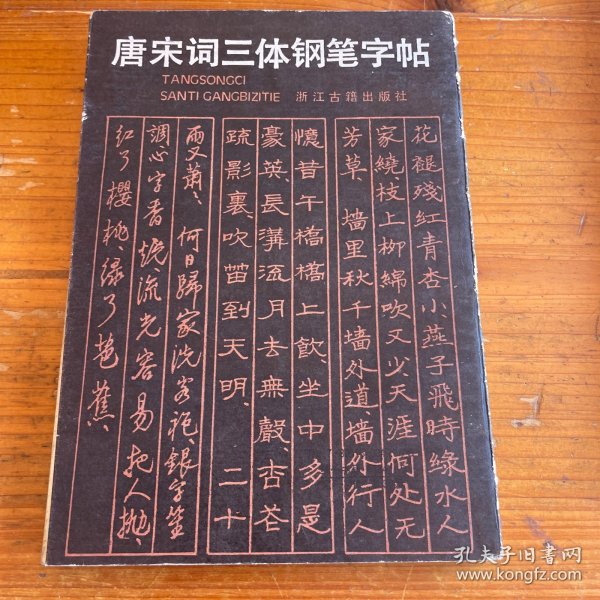 唐宋词三体钢笔字帖
TANGSONGCI
SANTI GANGBIZITIE 浙江古籍出版社
花褪殘红青杏小、燕子飛時綠水人
家繞、枝上柳綿吹又少天涯何处无
芳草、墙里秋千墙外道、墙外行人
憶昔午橋橋上飲、坐中多是
豪英、長溝流月去無聲、杏花
疏影裏、吹笛到天明、二十
雨又蕭、何日歸家洗客袍、銀字笙
調、心字香燒、流光容易把人抛、
红了櫻桃、绿了芭蕉、
孔夫子旧书网
www.kongfz.com